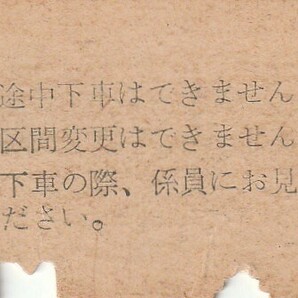 途中下車はできません
区間変更はできません
下車の際、係員にお見
ださい。